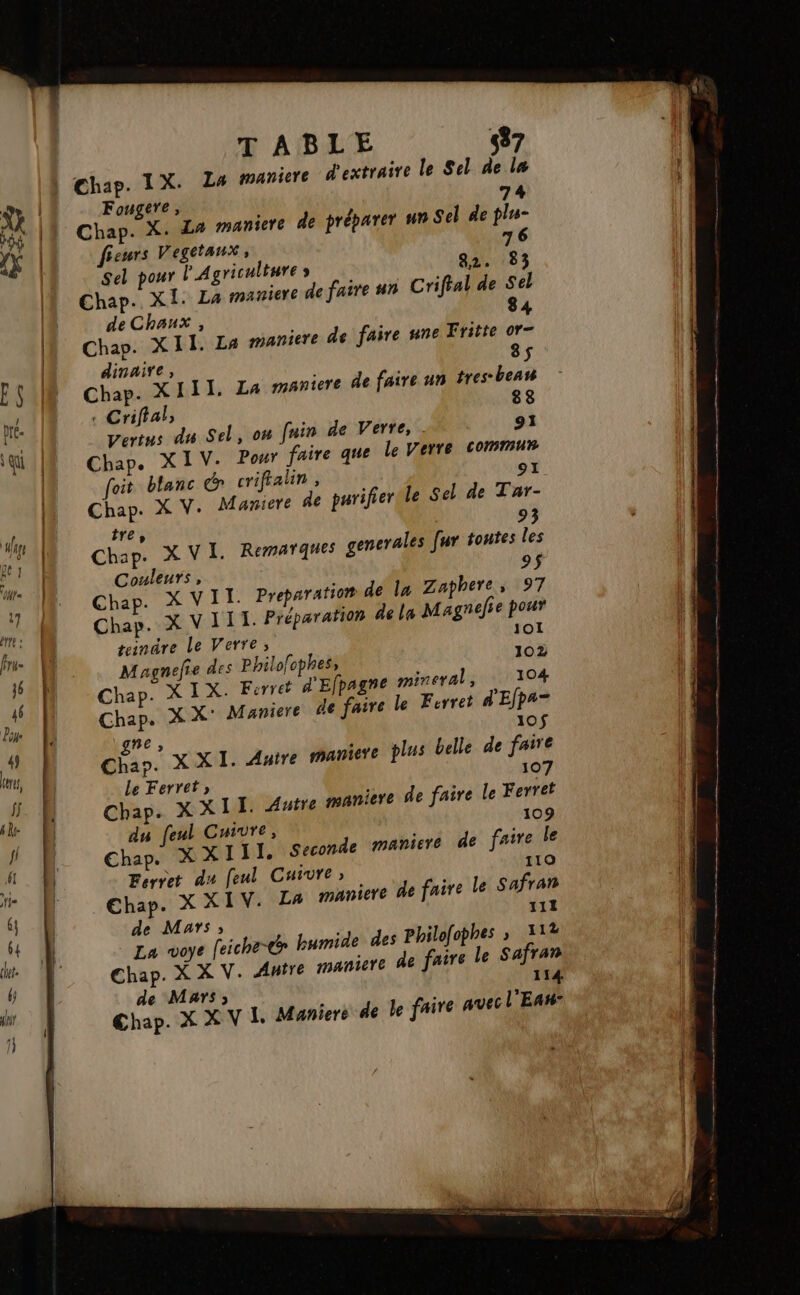 TABLE 587
Chap. IX. La maniere d'extraire le Sel de la
Fougere, 74
Chap. X. La maniere de préparer un Sel de plu-
ſieurs Vegetaux, 76
Sel pour l'Agriculture, 82. 83
Chap. XI. La maniere de faire un Criſtal de Sel
de Chaux, 84
Chap. XII. La maniere de faire une Fritte or-
dinaire, 85
Chap. XIII. La maniere de faire un tres-beau
Criſtal, 88
Vertus du Sel, ou ſuin de Verre, 91
Chap. XIV. Pour faire que le Verre commun
ſoit blanc & criſtalin, 91
Chap. XV. Maniere de purifier le Sel de Tar-
tre, 93
Chap. XVI. Remarques generales ſur toutes les
Couleurs, 95
Chap. XVII. Preparation de la Zaphere, 97
Chap. XVIII. Préparation de la Magneſie pour
teindre le Verre, 101
Magneſie des Philoſophes, 102
Chap. XIX. Ferret d'Eſpagne mineral, 104
Chap. XX. Maniere de faire le Ferret d'Eſpa-
gne, 105
Chap. XXI. Autre maniere plus belle de faire
le Ferret, 107
Chap. XXII. Autre maniere de faire le Ferret
du ſeul Cuivre, 109
Chap. XXIII. Seconde maniere de faire le
Ferret du ſeul Cuivre, 110
Chap. XXIV. La maniere de faire le Safran
de Mars, 111
La voye ſeiche & humide des Philoſophes, 112
Chap. XXV. Autre maniere de faire le Safran
de Mars, 114
Chap. XXVI. Maniere de le faire avec l'Eau-